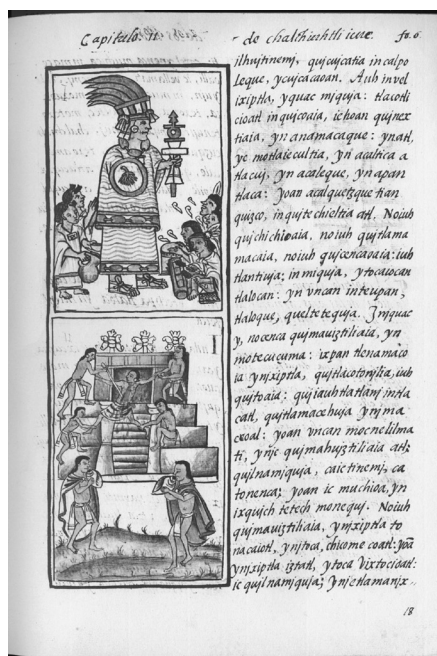 Capitulo. II
- de chalchiuhtli icue.
fo. 6.
ilhujtinemj, qujcujcatia in calpo
leque, ycujcacaoan. Auh in vel
ixiptla, yquac mjquja: tlacotli
cioatl in qujcoaia, ichoan qujnex
tiaia, yn anamacaque: yn atl,
yc motlaiecultia, yn acaltica a
tlacuj, yn acaleque, yn apan
tlaca: yoan acalquetzque tian
quizco, in qujtechieltia atl. No iuh
qujchichioaia, no iuh qujtlama
macaia, no iuh qujcencaoaia: iub
tlantiuja; in mjquja, ytocaiocan
tlalocan: yn vncan inteupan,
tlaloque, queltetequja. Jn jquac
y, no cenca qujmaujztiliaia, yn
motecuçuma: ixpan tlenamaco
ia yn jxiptla, qujtlacotonjlia, iuh
qujtoaia: quj iauhtlatlanj in tla
catl, qujtlamacehuja yn j ma
ceoal: yoan vncan mocnelilma
ti, ynjc qujmahujztiliaia atl:
qujlnamjquja, ca ic tinemj, ca
tonenca: yoan ic muchioa, yn
ixqujch tetech monequj. No iuh
qujmaujztiliaia, yn jxiptla to
nacaiotl, yn jtoca, chicome coatl: yoã
yn jxiptla iztatl, ytoca Vixtocioatl:
ic qujlnamjquja; ynjc tlamanjx-
1
18